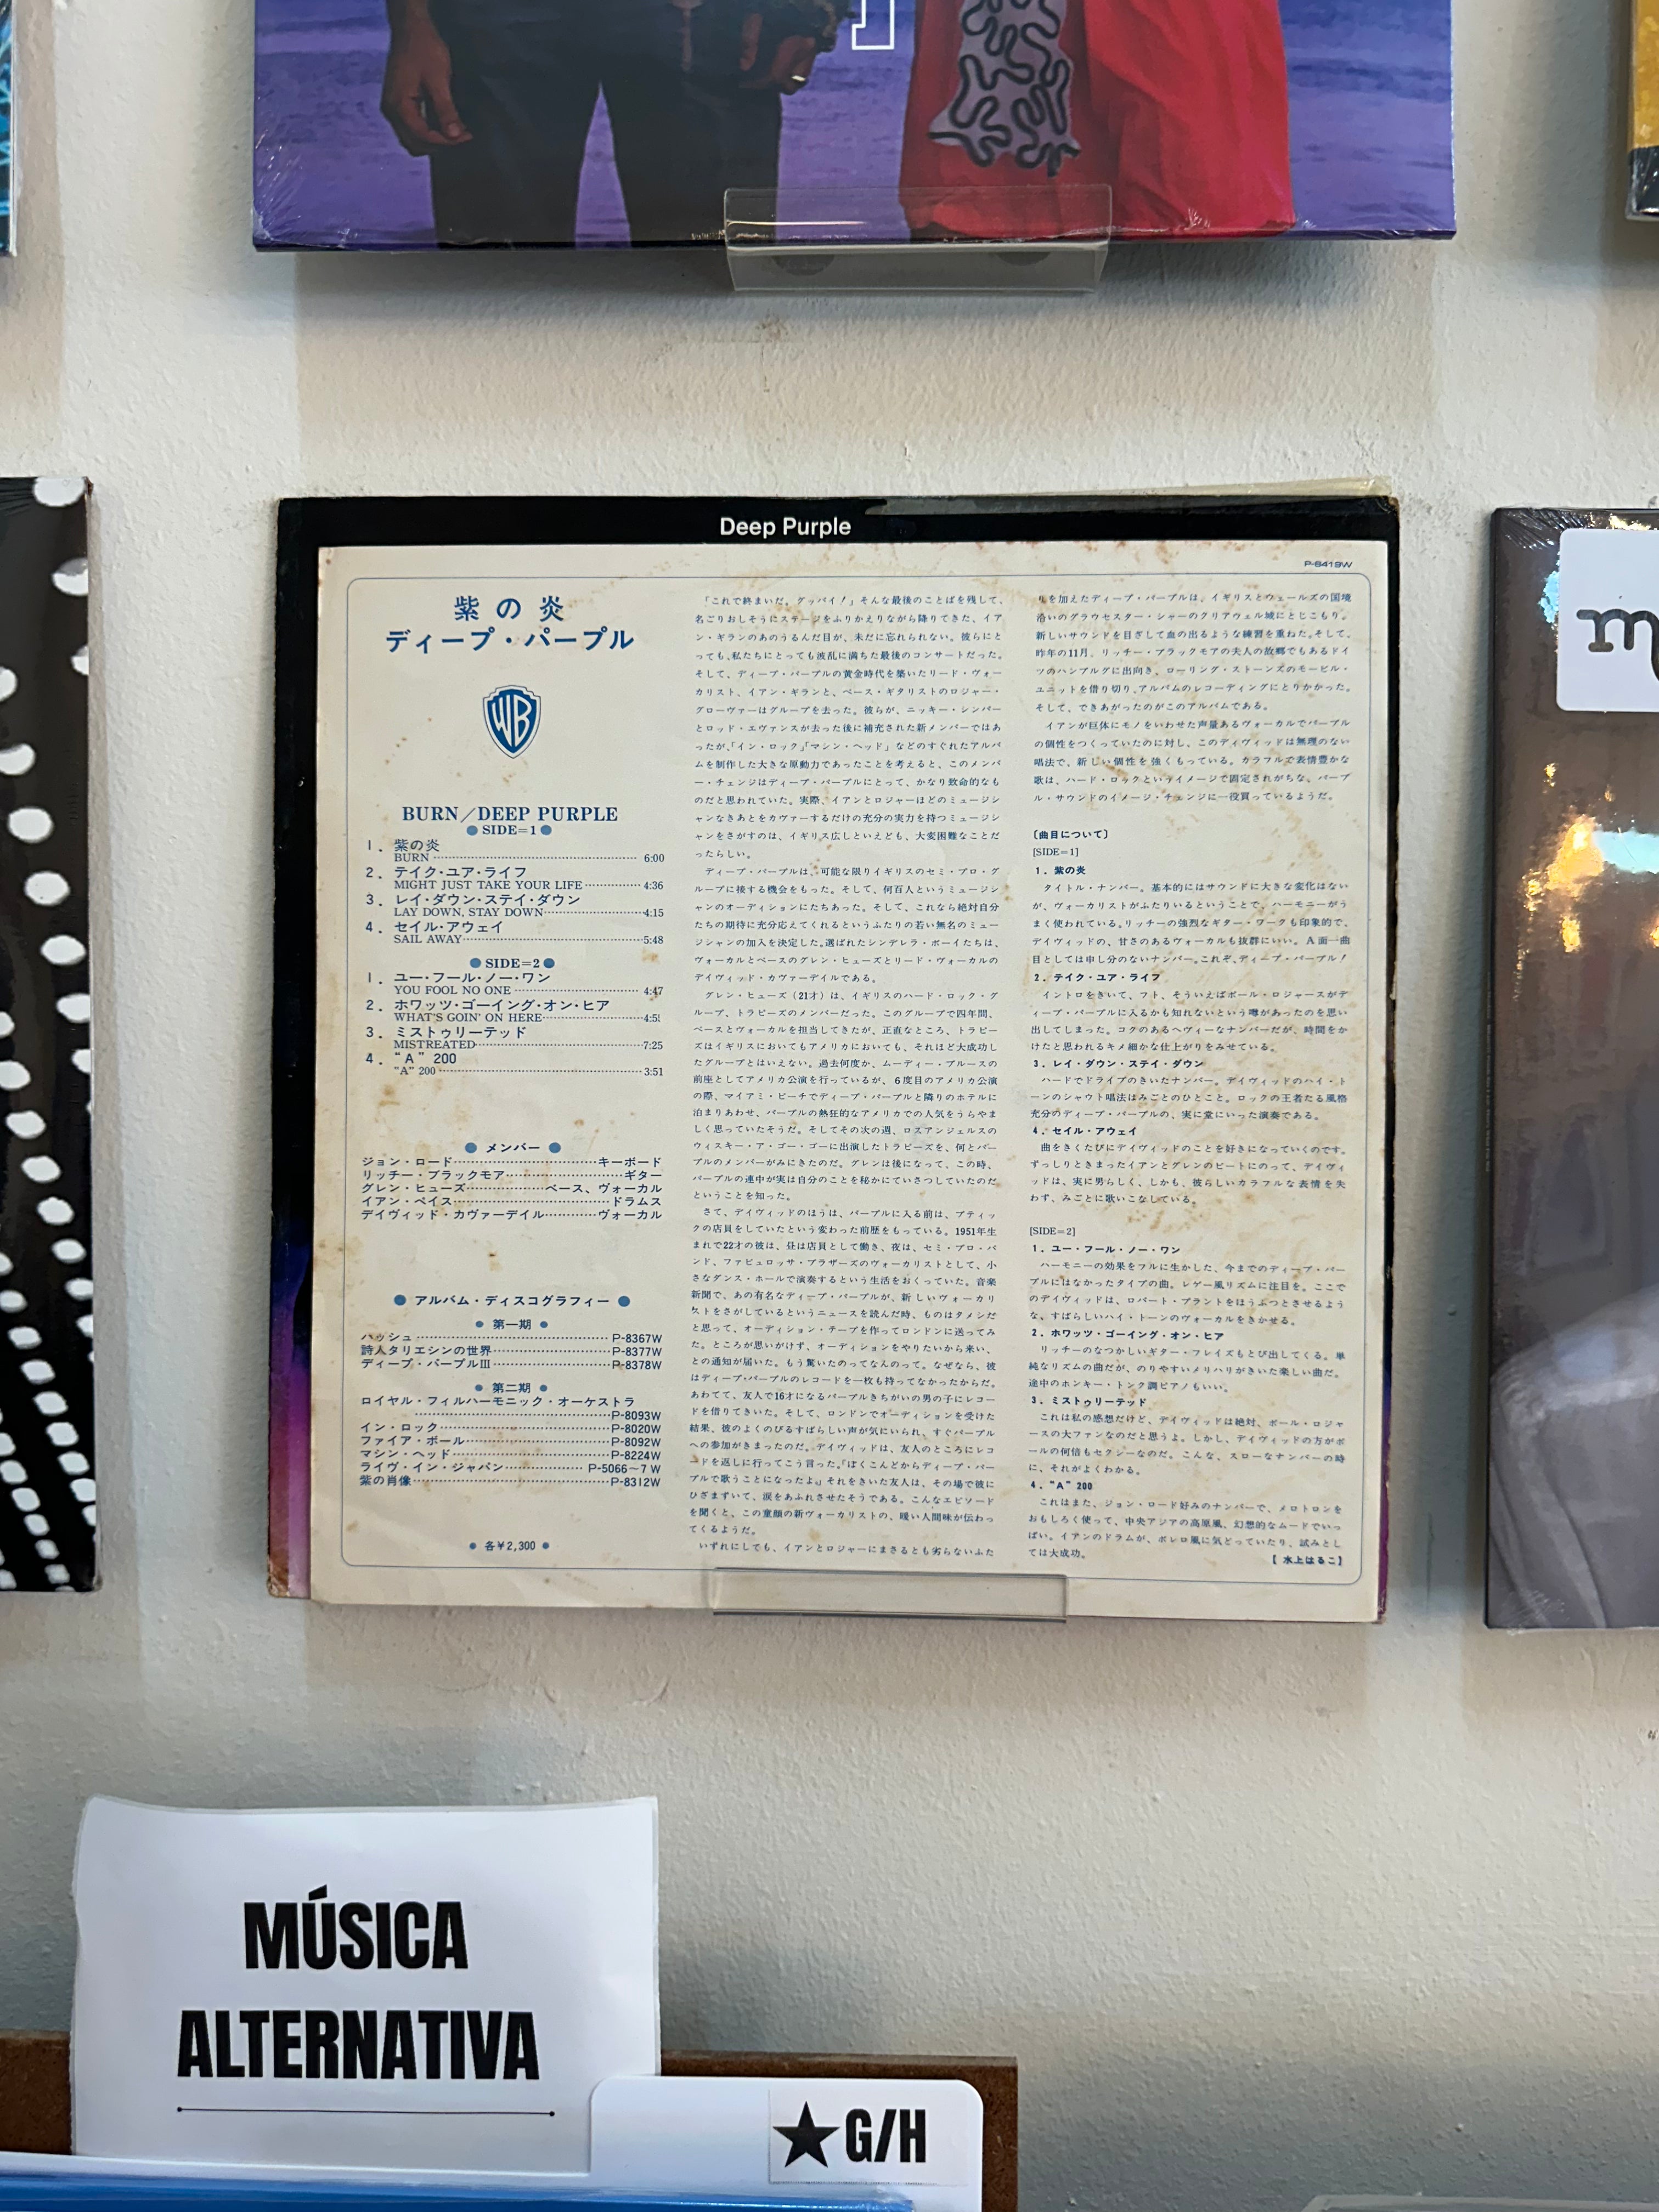 Deep Purple
P-8419W
紫の炎
ディープ・パープル
WB
BURN/DEEP PURPLE
●SIDE=1●
1. 紫の炎
BURN 6:00
2. テイク・ユア・ライフ
MIGHT JUST TAKE YOUR LIFE 4:36
3. レイ・ダウン・ステイ・ダウン
LAY DOWN, STAY DOWN 4:15
4. セイル・アウェイ
SAIL AWAY 5:48
●SIDE=2●
1. ユー・フール・ノー・ワン
YOU FOOL NO ONE 4:47
2. ホワッツ・ゴーイング・オン・ヒア
WHAT'S GOIN' ON HERE 4:5
3. ミストゥリーテッド
MISTREATED 7:25
4. “A” 200
"A" 200 3:51
● メンバー ●
ジョン・ロード キーボード
リッチー・ブラックモア ギター
グレン・ヒューズ ベース、ヴォーカル
イアン・ペイス ドラムス
デイヴィッド・カヴァーデイル ヴォーカル
● アルバム・ディスコグラフィー ●
● 第一期 ●
ハッシュ P-8367W
詩人タリエシンの世界 P-8377W
ディープ・パープルIII P-8378W
● 第二期 ●
ロイヤル・フィルハーモニック・オーケストラ
P-8093W
イン・ロック P-8020W
ファイア・ボール P-8092W
マシン・ヘッド P-8224W
ライヴ・イン・ジャパン P-5066〜7W
紫の肖像 P-8312W
● 各¥2,300 ●
「これで終まいだ。グッバイ!」そんな最後のことばを残して、
名ごりおしそうにステージをふりかえりながら降りてきた、イア
ン・ギランのあのうるんだ目が、未だに忘れられない。彼らにと
っても、私たちにとっても波乱に満ちた最後のコンサートだった。
そして、ディープ・パープルの黄金時代を築いたリード・ヴォー
カリスト、イアン・ギランと、ベース・ギタリストのロジャー・
グローヴァーはグループを去った。彼らが、ニッキー・シンパー
とロッド・エヴァンスが去った後に補充された新メンバーではあ
ったが、「イン・ロック」「マシン・ヘッド」などのすぐれたアルバ
ムを制作した大きな原動力であったことを考えると、このメンバ
ー・チェンジはディープ・パープルにとって、かなり致命的なも
のだと思われていた。実際、イアンとロジャーほどのミュージシ
ャンなきあとをカヴァーするだけの充分の実力を持つミュージシ
ャンをさがすのは、イギリス広しといえども、大変困難なことだ
ったらしい。
ディープ・パープルは、可能な限りイギリスのセミ・プロ・グ
ループに接する機会をもった。そして、何百人というミュージシ
ャンのオーディションにたちあった。そして、これなら絶対自分
たちの期待に充分応えてくれるというふたりの若い無名のミュー
ジシャンの加入を決定した。選ばれたシンデレラ・ボーイたちは、
ヴォーカルとベースのグレン・ヒューズとリード・ヴォーカルの
デイヴィッド・カヴァーデイルである。
グレン・ヒューズ(21才)は、イギリスのハード・ロック・グ
ループ、トラピーズのメンバーだった。このグループで四年間、
ベースとヴォーカルを担当してきたが、正直なところ、トラピー
ズはイギリスにおいてもアメリカにおいても、それほど大成功し
たグループとはいえない。過去何度か、ムーディー・ブルースの
前座としてアメリカ公演を行っているが、6度目のアメリカ公演
の際、マイアミ・ビーチでディープ・パープルと隣りのホテルに
泊まりあわせ、パープルの熱狂的なアメリカでの人気をうらやま
しく思っていたそうだ。そしてその次の週、ロスアンジェルスの
ウィスキー・ア・ゴー・ゴーに出演したトラピーズを、何とパー
プルのメンバーがみにきたのだ。グレンは後になって、この時、
パープルの連中が実は自分のことを秘かにていさつしていたのだ
ということを知った。
さて、デイヴィッドのほうは、パープルに入る前は、ブティッ
クの店員をしていたという変わった前歴をもっている。1951年生
まれで22才の彼は、昼は店員として働き、夜は、セミ・プロ・バ
ンド、ファビュロッサ・ブラザーズのヴォーカリストとして、小
さなダンス・ホールで演奏するという生活をおくっていた。音楽
新聞で、あの有名なディープ・パープルが、新しいヴォーカリ
ストをさがしているというニュースを読んだ時、ものはタメシだ
と思って、オーディション・テープを作ってロンドンに送ってみ
た。ところが思いがけず、オーディションをやりたいから来い、
との通知が届いた。もう驚いたのってなんのって。なぜなら、彼
はディープ・パープルのレコードを一枚も持ってなかったからだ。
あわてて、友人で16才になるパープルきちがいの男の子にレコー
ドを借りてきた。そして、ロンドンでオーディションを受けた
結果、彼のよくのびるすばらしい声が気にいられ、すぐパープル
への参加がきまったのだ。デイヴィッドは、友人のところにレコ
ードを返しに行ってこう言った。「ぼくこんどからディープ・パー
プルで歌うことになったよ。」それをきいた友人は、その場で彼に
ひざまずいて、涙をあふれさせたそうである。こんなエピソード
を聞くと、この童顔の新ヴォーカリストの、暖い人間味が伝わっ
てくるようだ。
いずれにしても、イアンとロジャーにまさるとも劣らないふた
りを加えたディープ・パープルは、イギリスとウェールズの国境
沿いのグラウセスター・シャーのクリアウェル城にとじこもり、
新しいサウンドを目ざして血の出るような練習を重ねた。そして、
昨年の11月、リッチー・ブラックモアの夫人の故郷でもあるドイ
ツのハンブルグに出向き、ローリング・ストーンズのモービル・
ユニットを借り切り、アルバムのレコーディングにとりかかった。
そして、できあがったのがこのアルバムである。
イアンが巨体にモノをいわせた声量あるヴォーカルでパープル
の個性をつくっていたのに対し、このデイヴィッドは無理のない
唱法で、新しい個性を強くもっている。カラフルで表情豊かな
歌は、ハード・ロックというイメージで固定されがちな、パープ
ル・サウンドのイメージ・チェンジに一役買っているようだ。
〔曲目について〕
[SIDE=1]
1. 紫の炎
タイトル・ナンバー。基本的にはサウンドに大きな変化はない
が、ヴォーカリストがふたりいるということで、ハーモニーがう
まく使われている。リッチーの強烈なギター・ワークも印象的で、
デイヴィッドの、甘さのあるヴォーカルも抜群にいい。A面一曲
目としては申し分のないナンバー。これぞ、ディープ・パープル!
2. テイク・ユア・ライフ
イントロをきいて、フト、そういえばポール・ロジャースがデ
ィープ・パープルに入るかも知れないという噂があったのを思い
出してしまった。コクのあるヘヴィーなナンバーだが、時間をか
けたと思われるキメ細かな仕上がりをみせている。
3. レイ・ダウン・ステイ・ダウン
ハードでドライブのきいたナンバー。デイヴィッドのハイ・ト
ーンのシャウト唱法はみごとのひとこと。ロックの王者たる風格
充分のディープ・パープルの、実に堂にいった演奏である。
4. セイル・アウェイ
曲をきくたびにデイヴィッドのことを好きになっていくのです。
ずっしりときまったイアンとグレンのビートにのって、デイヴィ
ッドは、実に男らしく、しかも、彼らしいカラフルな表情を失
わず、みごとに歌いこなしている。
[SIDE=2]
1. ユー・フール・ノー・ワン
ハーモニーの効果をフルに生かした、今までのディープ・パー
プルにはなかったタイプの曲。レゲー風リズムに注目を。ここで
のデイヴィッドは、ロバート・プラントをほうふつとさせるよう
な、すばらしいハイ・トーンのヴォーカルをきかせる。
2. ホワッツ・ゴーイング・オン・ヒア
リッチーのなつかしいギター・フレイズもとび出してくる。単
純なリズムの曲だが、のりやすいメリハリがきいた楽しい曲だ。
途中のホンキー・トンク調ピアノもいい。
3. ミストゥリーテッド
これは私の感想だけど、デイヴィッドは絶対、ポール・ロジャ
ースの大ファンなのだと思うよ。しかし、デイヴィッドの方がポ
ールの何倍もセクシーなのだ。こんな、スローなナンバーの時
に、それがよくわかる。
4. “A” 200
これはまた、ジョン・ロード好みのナンバーで、メロトロンを
おもしろく使って、中央アジアの高原風、幻想的なムードでいっ
ぱい。イアンのドラムが、ボレロ風に気どっていたり、試みとし
ては大成功。
【水上はるこ】
MÚSICA
ALTERNATIVA
★G/H